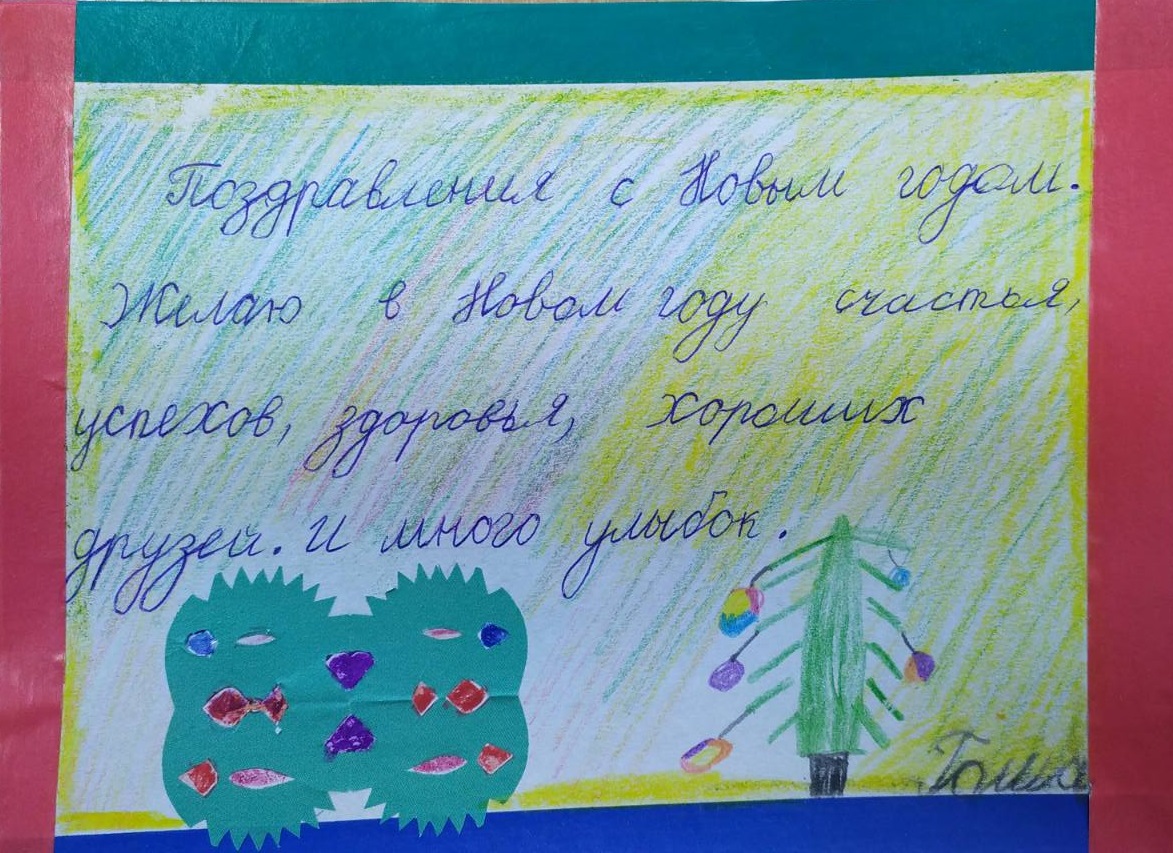 Поздравления с Новым годом.
Желаю в Новом году счастья,
успехов, здоровья, хороших
друзей. И много улыбок.